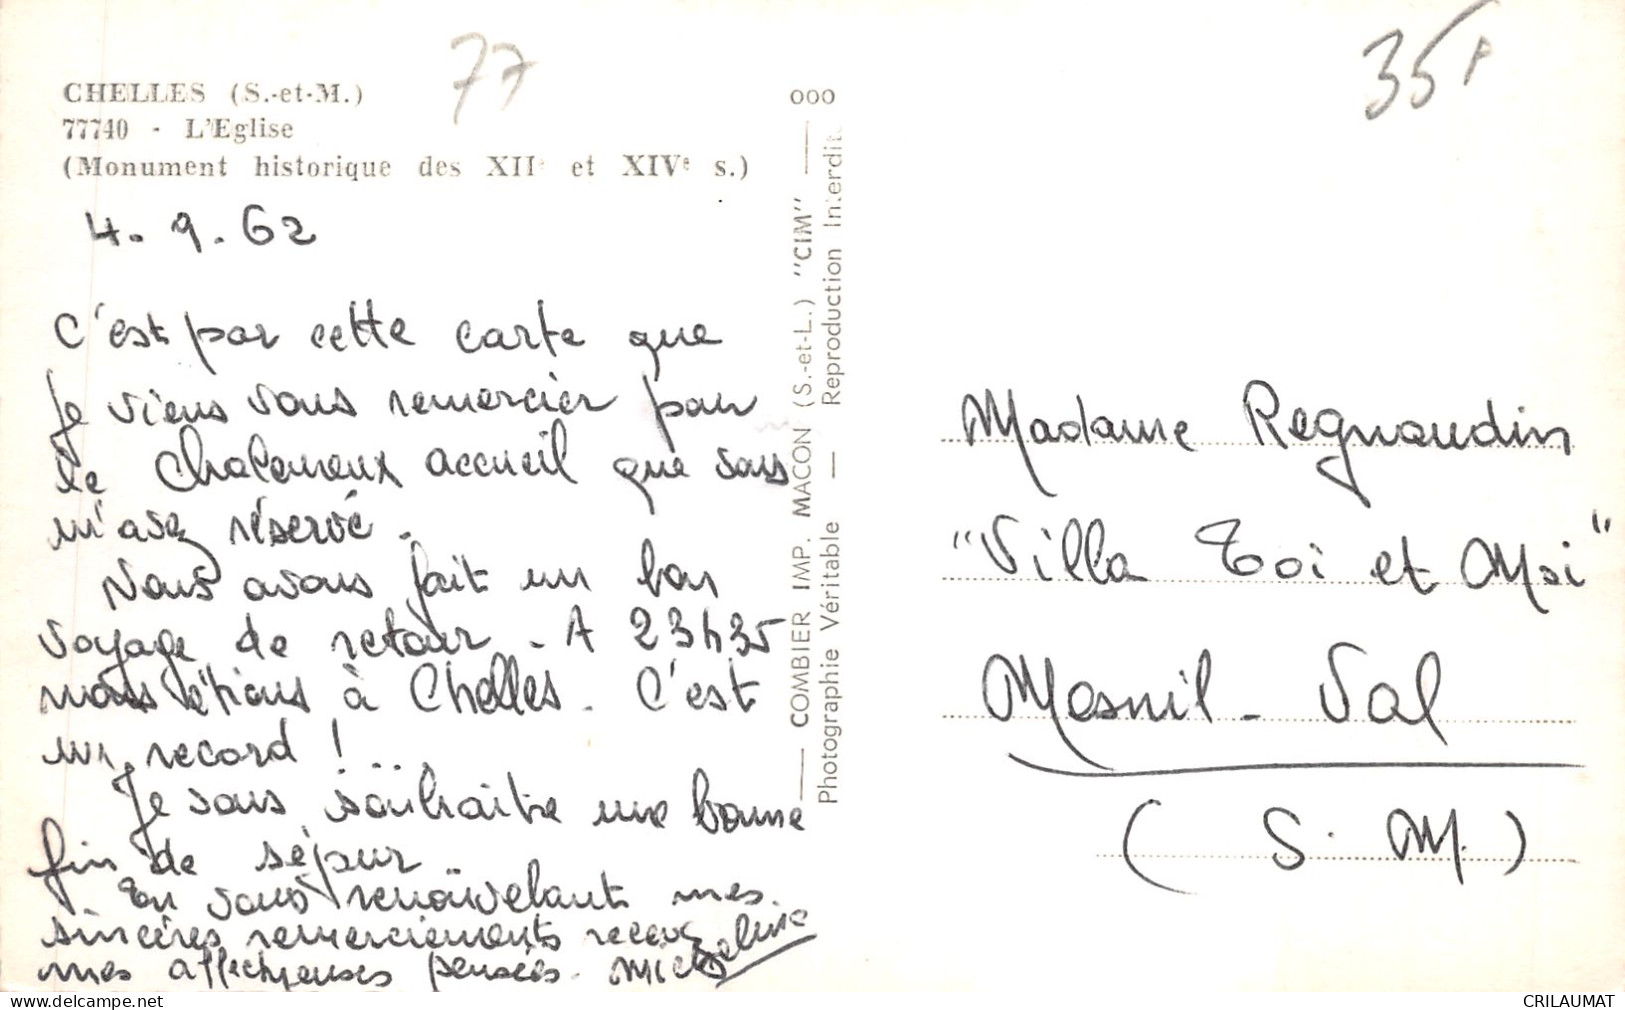 77
35F
CHELLES (S.-et-M.)
77740 - L'Eglise
(Monument historique des XIIe et XIVe s.)
4. 9. 62
C'est par cette carte que
je viens vous remercier pour
le chaleureux accueil que vous
m'avez réservé.
Nous avons fait un bon
voyage de retour. A 23h35
nous étions à Chelles. C'est
un record !...
Je vous souhaite une bonne
fin de séjour
En vous renouvelant mes
sincères remerciements recevez
mes affectueuses pensées. Micheline
000
COMBIER IMP. MACON (S.-et-L.) "CIM"
Photographie Véritable — Reproduction Interdite
Madame Regnaudin
"Villa Toi et Moi"
Mesnil-Val
(S. M.)
CRILAUMAT